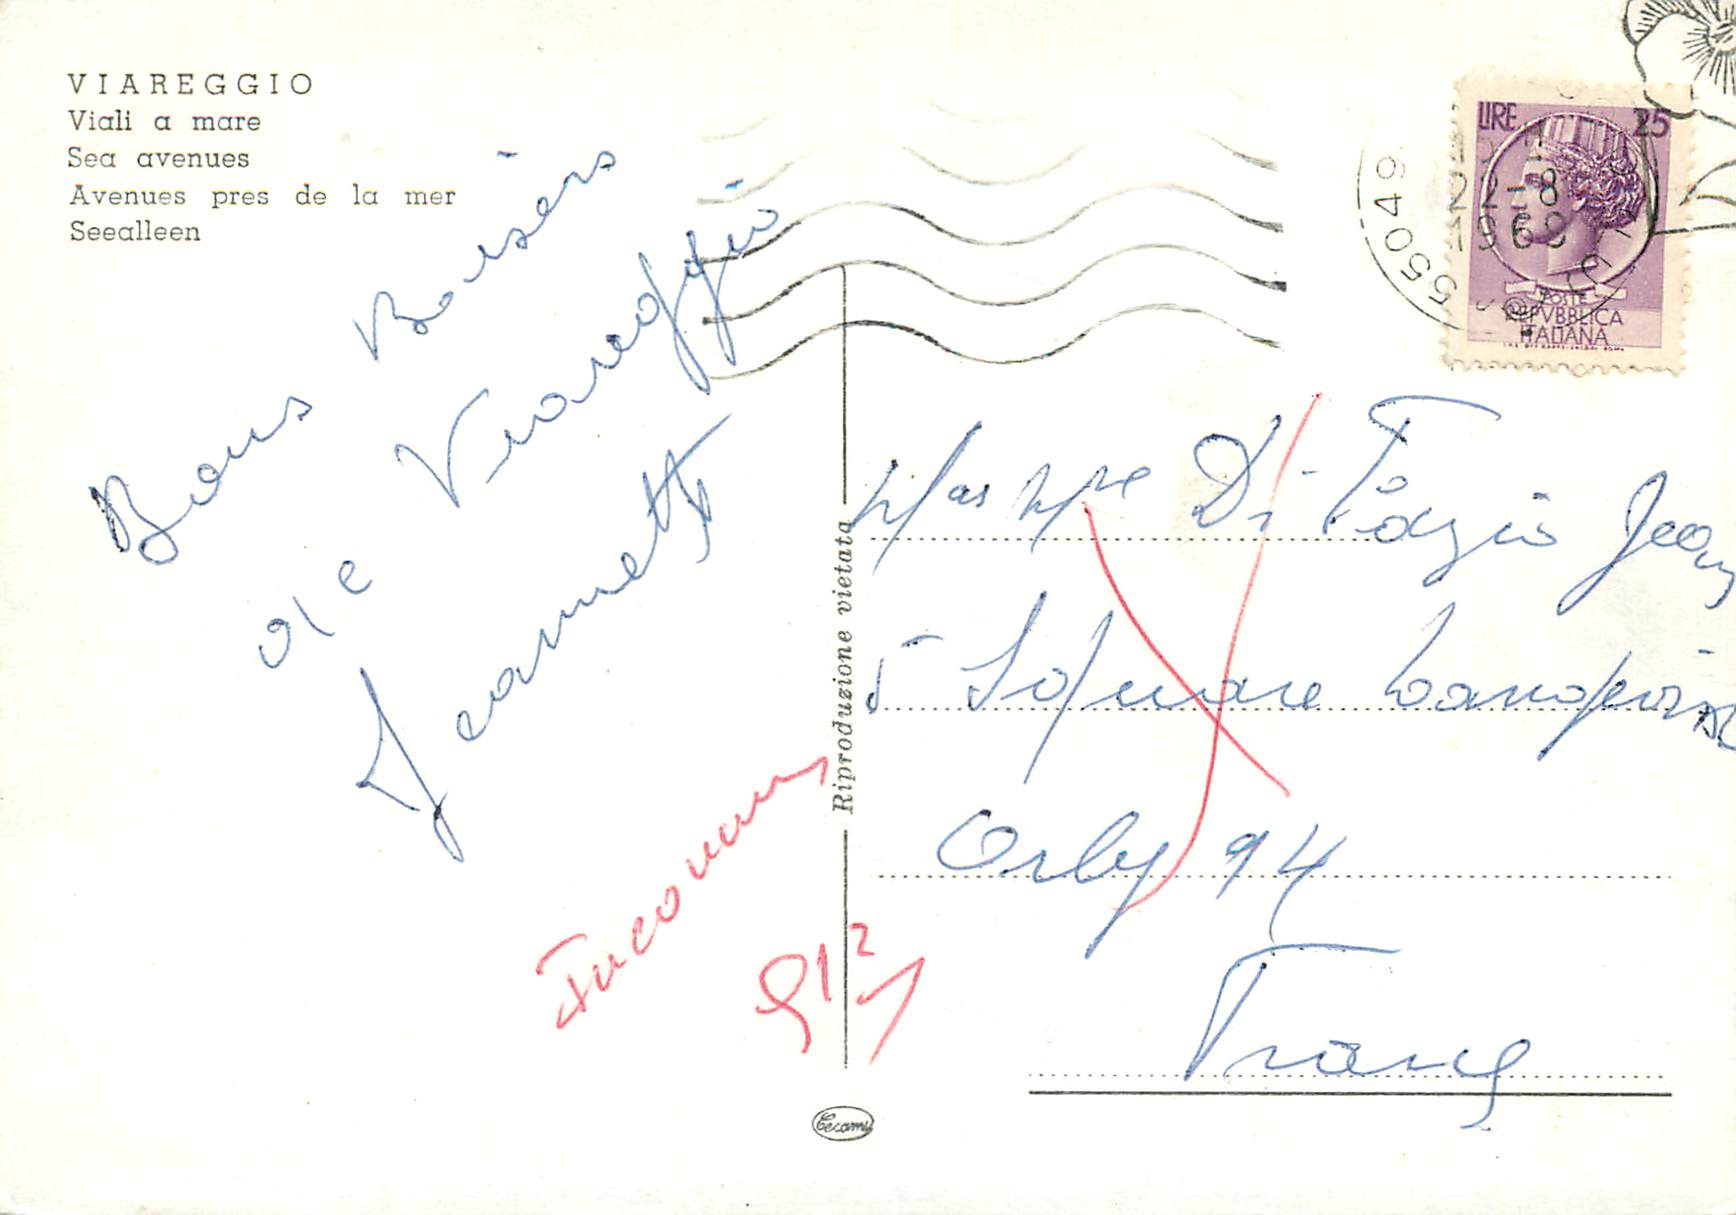 VIAREGGIO
Viali a mare
Sea avenues
Avenues pres de la mer
Seealleen
Bons Baisers
de Viareggio
Jeannette
Inconnu
Riproduzione vietata
LIRE 25
POSTE
REPVBBLICA
ITALIANA
55049
22-8
1968
Di Fazio Jean
5 Square
Orly 94
France